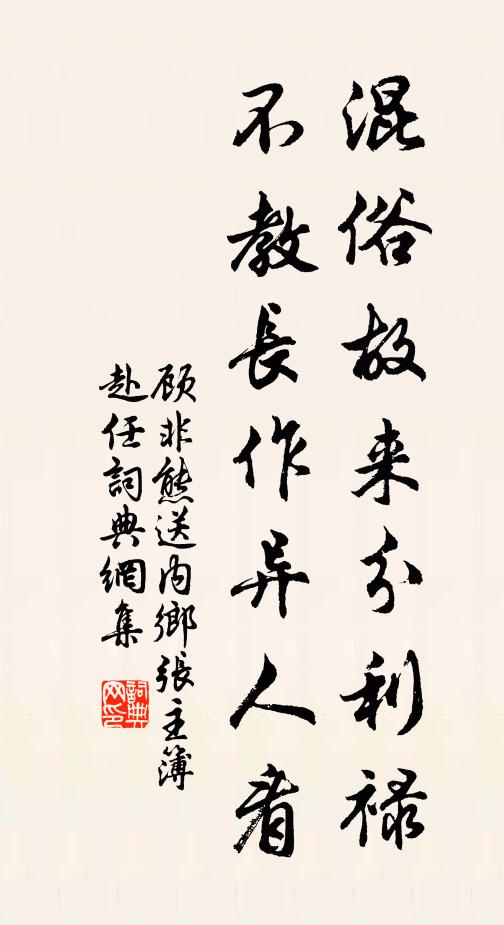 混俗故来分利禄
不教長作异人看
顾非熊送内鄉張主簿
赴任詞典網集
詞典
网印